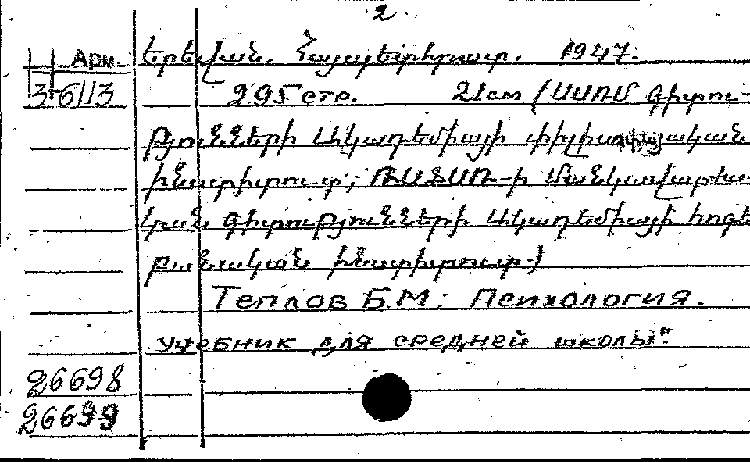 2.
Арм. Երևան. Հայպետհրատ. 1947.
3-6113 295 стр. 21см /ՍՍՌՄ Գիտու-
թյունների Ակադեմիայի փիլիսոփայական
ինստիտուտ; ՌՍՖՍՌ-ի մանկավարժա-
կան Գիտությունների Ակադեմիայի հոգե-
բանական ինստիտուտ-/
Теплов Б.М. Психология.
Учебник для средней школы".
26698
26699